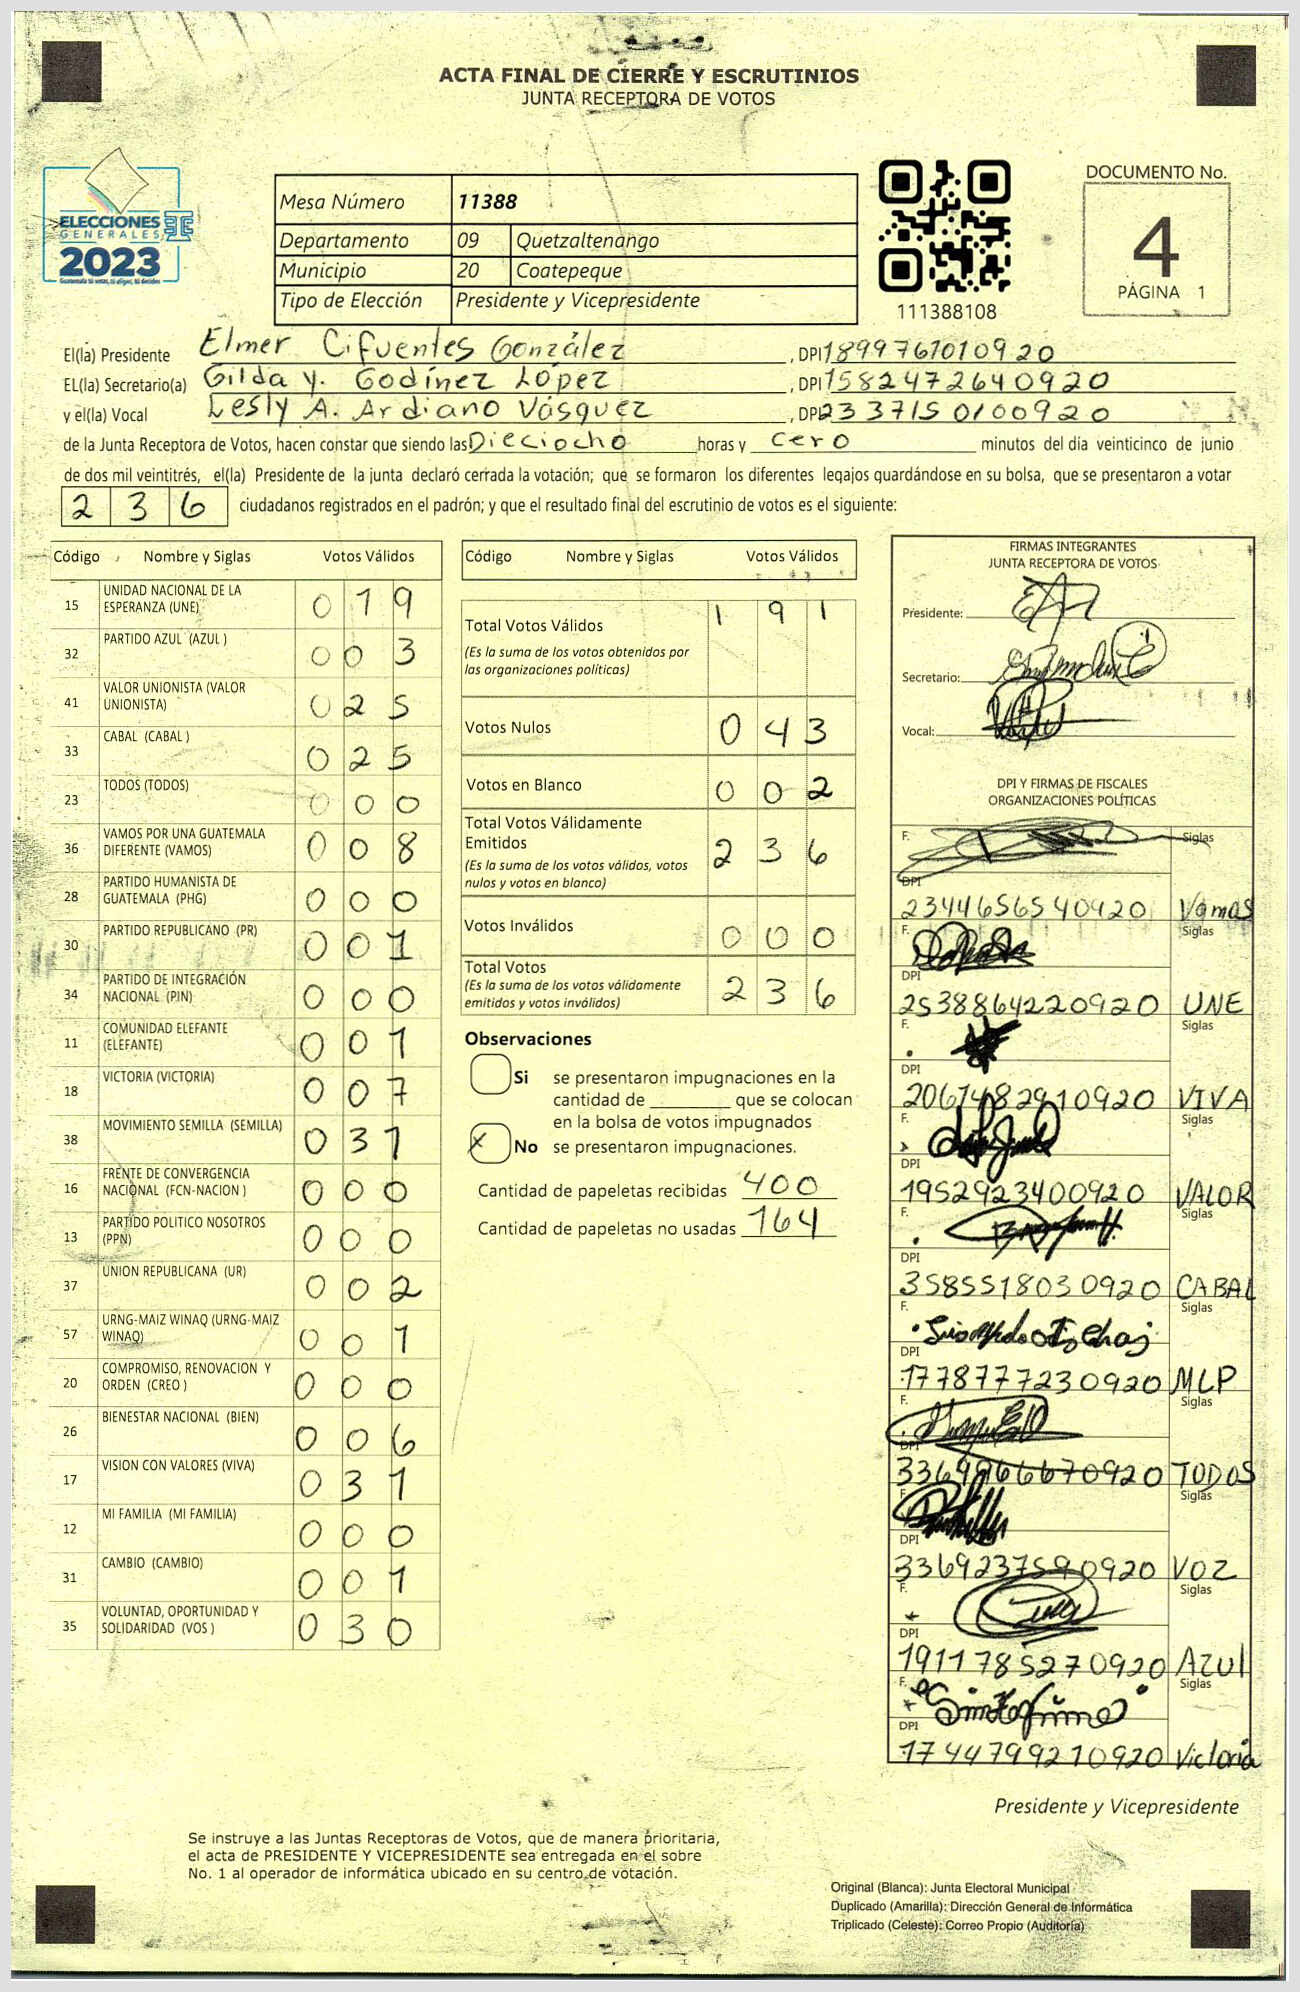 ACTA FINAL DE CIERRE Y ESCRUTINIOS
JUNTA RECEPTORA DE VOTOS
ELECCIONES
GENERALES
2023
Guatemala tú votas, tú eliges, tú decides
Mesa Número 11388
Departamento 09 Quetzaltenango
Municipio 20 Coatepeque
Tipo de Elección Presidente y Vicepresidente
111388108
DOCUMENTO No.
4
PÁGINA 1
El(la) Presidente Elmer Cifuentes González, DPI 1899761010920
EL(la) Secretario(a) Gilda Y. Godínez López, DPI 1582472640920
y el(la) Vocal Lesly A. Ardiano Vásquez, DPI 2337150100920
de la Junta Receptora de Votos, hacen constar que siendo las Dieciocho horas y cero minutos del día veinticinco de junio
de dos mil veintitrés, el(la) Presidente de la junta declaró cerrada la votación; que se formaron los diferentes legajos guardándose en su bolsa, que se presentaron a votar
236 ciudadanos registrados en el padrón; y que el resultado final del escrutinio de votos es el siguiente:
Código Nombre y Siglas Votos Válidos
15 UNIDAD NACIONAL DE LA ESPERANZA (UNE) 019
32 PARTIDO AZUL (AZUL ) 003
41 VALOR UNIONISTA (VALOR UNIONISTA) 025
33 CABAL (CABAL ) 025
23 TODOS (TODOS) 000
36 VAMOS POR UNA GUATEMALA DIFERENTE (VAMOS) 008
28 PARTIDO HUMANISTA DE GUATEMALA (PHG) 000
30 PARTIDO REPUBLICANO (PR) 001
34 PARTIDO DE INTEGRACIÓN NACIONAL (PIN) 000
11 COMUNIDAD ELEFANTE (ELEFANTE) 001
18 VICTORIA (VICTORIA) 007
38 MOVIMIENTO SEMILLA (SEMILLA) 031
16 FRENTE DE CONVERGENCIA NACIONAL (FCN-NACION ) 000
13 PARTIDO POLITICO NOSOTROS (PPN) 000
37 UNION REPUBLICANA (UR) 002
57 URNG-MAIZ WINAQ (URNG-MAIZ WINAQ) 001
20 COMPROMISO, RENOVACION Y ORDEN (CREO ) 000
26 BIENESTAR NACIONAL (BIEN) 006
17 VISION CON VALORES (VIVA) 031
12 MI FAMILIA (MI FAMILIA) 000
31 CAMBIO (CAMBIO) 001
35 VOLUNTAD, OPORTUNIDAD Y SOLIDARIDAD (VOS ) 030
Código Nombre y Siglas Votos Válidos
Total Votos Válidos 191
(Es la suma de los votos obtenidos por
las organizaciones políticas)
Votos Nulos 043
Votos en Blanco 002
Total Votos Válidamente
Emitidos 236
(Es la suma de los votos válidos, votos
nulos y votos en blanco)
Votos Inválidos 000
Total Votos 236
(Es la suma de los votos válidamente
emitidos y votos inválidos)
Observaciones
Si se presentaron impugnaciones en la
cantidad de ________ que se colocan
en la bolsa de votos impugnados
X No se presentaron impugnaciones.
Cantidad de papeletas recibidas 400
Cantidad de papeletas no usadas 164
FIRMAS INTEGRANTES
JUNTA RECEPTORA DE VOTOS
Presidente:
Secretario:
Vocal:
DPI Y FIRMAS DE FISCALES
ORGANIZACIONES POLÍTICAS
F. Siglas
DPI
2344656540920 Vamos
F. Siglas
DPI
2538864220920 UNE
F. Siglas
DPI
2067482910920 VIVA
F. Siglas
DPI
1952923400920 VALOR
F. Siglas
DPI
3585518030920 CABAL
F. Siglas
DPI
1778777230920 MLP
F. Siglas
DPI
3369966670920 TODOS
F. Siglas
DPI
3369237590920 VOZ
F. Siglas
DPI
1911785270920 Azul
F. Siglas
DPI
1744799210920 Victoria
Presidente y Vicepresidente
Se instruye a las Juntas Receptoras de Votos, que de manera prioritaria,
el acta de PRESIDENTE Y VICEPRESIDENTE sea entregada en el sobre
No. 1 al operador de informática ubicado en su centro de votación.
Original (Blanca): Junta Electoral Municipal
Duplicado (Amarilla): Dirección General de Informática
Triplicado (Celeste): Correo Propio (Auditoría)